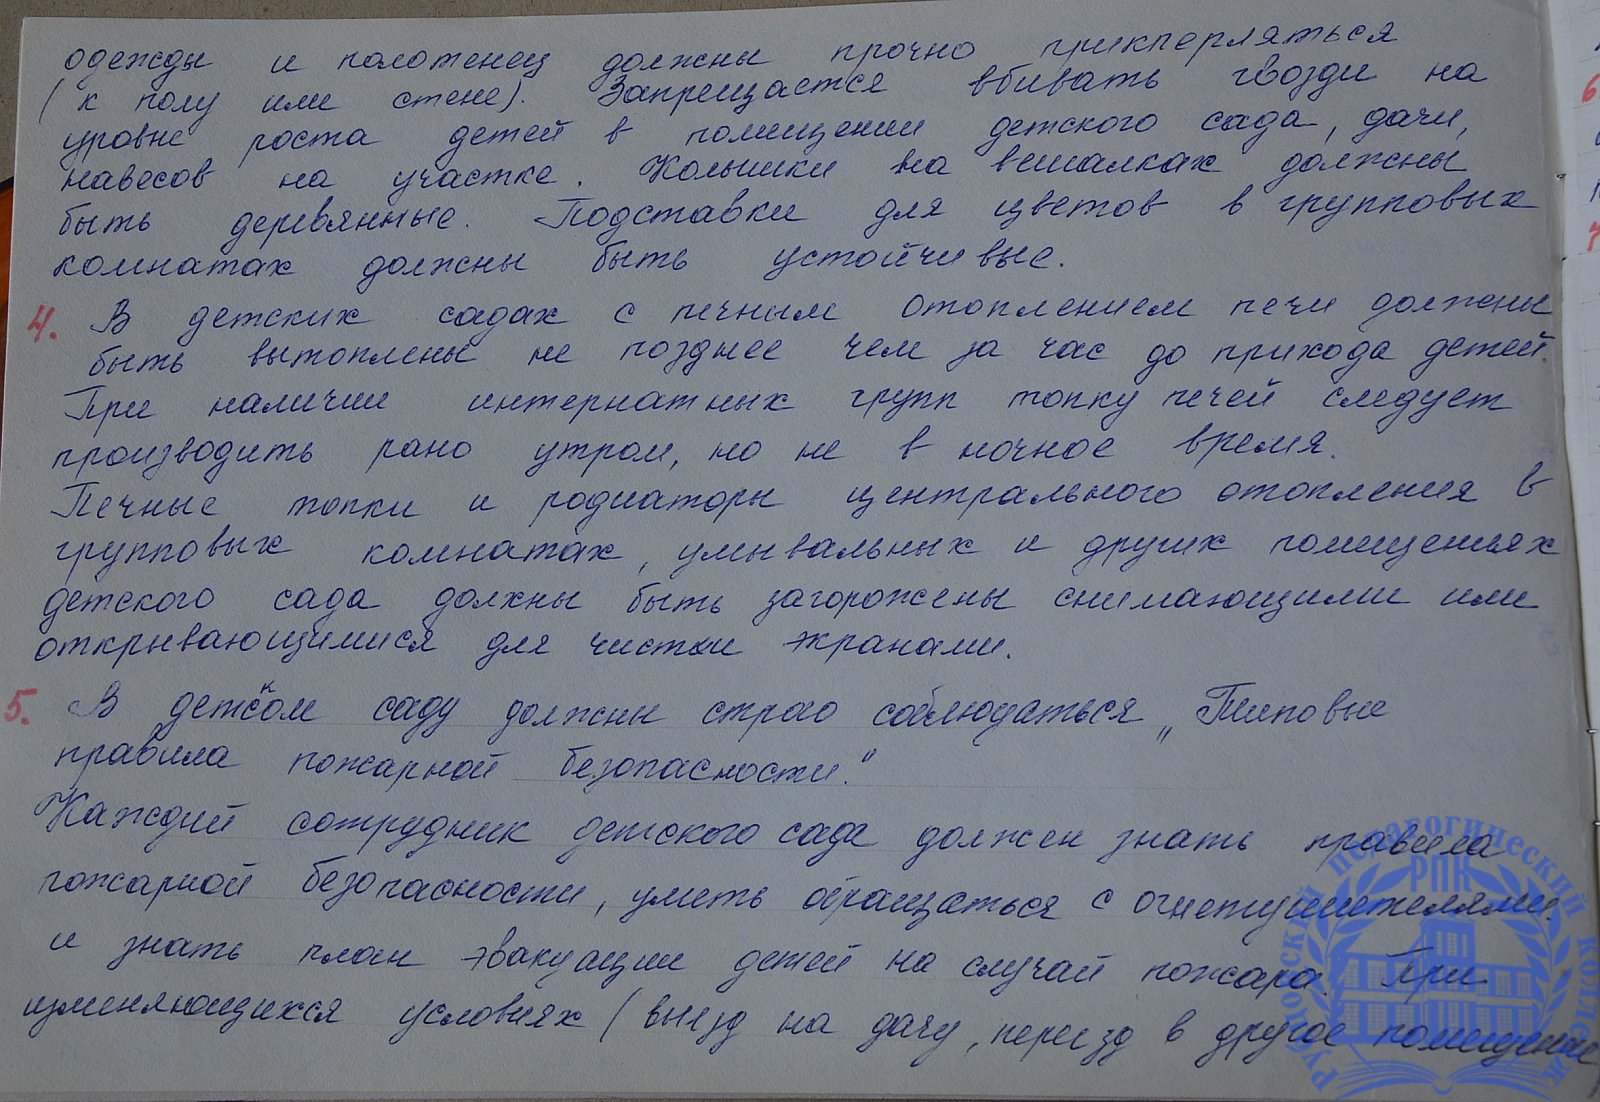 одежды и полотенец должны прочно прикперляться
(к полу или стене). Запрещается вбивать гвозди на
уровне роста детей в помещении детского сада, дачи,
навесов на участке. Колышки на вешалках должны
быть деревянные. Подставки для цветов в групповых
комнатах должны быть устойчивые.
4. В детских садах с печным отоплением печи должны
быть вытоплены не позднее чем за час до прихода детей.
При наличии интернатных групп топку печей следует
производить рано утром, но не в ночное время.
Печные топки и родиаторы центрального отопления в
групповых комнатах, умывальных и других помещениях
детского сада должны быть загорожены снимающими или
открывающимися для чистки экранами.
5. В детском саду должны строго соблюдаться „Типовые
правила пожарной безопасности."
Каждий сотрудник детского сада должен знать правила
пожарной безопасности, уметь обращаться с огнетушителями.
и знать план эвакуации детей на случай пожара. При
изменяющихся условиях (выезд на дачу, переезд в другое помещение)
Рубцовский педагогический колледж
РПК